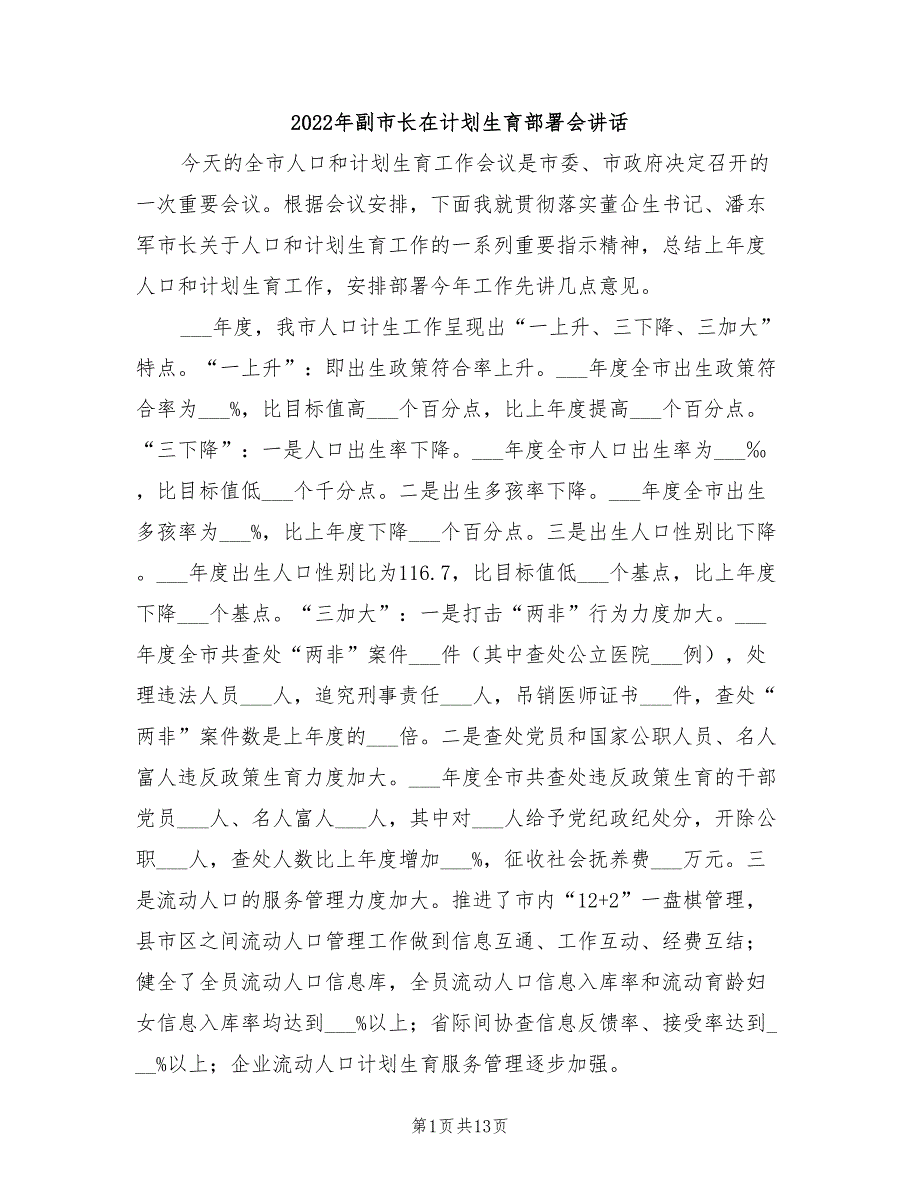 2022年副市长在计划生育部署会讲话
今天的全市人口和计划生育工作会议是市委、市政府决定召开的
一次重要会议。根据会议安排，下面我就贯彻落实董仚生书记、潘东
军市长关于人口和计划生育工作的一系列重要指示精神，总结上年度
人口和计划生育工作，安排部署今年工作先讲几点意见。
___年度，我市人口计生工作呈现出“一上升、三下降、三加大”
特点。“一上升”：即出生政策符合率上升。___年度全市出生政策符
合率为___%，比目标值高___个百分点，比上年度提高___个百分点。
“三下降”：一是人口出生率下降。___年度全市人口出生率为___‰
，比目标值低___个千分点。二是出生多孩率下降。___年度全市出生
多孩率为___%，比上年度下降___个百分点。三是出生人口性别比下降
。___年度出生人口性别比为116.7，比目标值低___个基点，比上年度
下降___个基点。“三加大”：一是打击“两非”行为力度加大。___
年度全市共查处“两非”案件___件（其中查处公立医院___例），处
理违法人员___人，追究刑事责任___人，吊销医师证书___件，查处“
两非”案件数是上年度的___倍。二是查处党员和国家公职人员、名人
富人违反政策生育力度加大。___年度全市共查处违反政策生育的干部
党员___人、名人富人___人，其中对___人给予党纪政纪处分，开除公
职___人，查处人数比上年度增加___%，征收社会抚养费___万元。三
是流动人口的服务管理力度加大。推进了市内“12+2”一盘棋管理，
县市区之间流动人口管理工作做到信息互通、工作互动、经费互结；
健全了全员流动人口信息库，全员流动人口信息入库率和流动育龄妇
女信息入库率均达到___%以上；省际间协查信息反馈率、接受率达到_
__%以上；企业流动人口计划生育服务管理逐步加强。
第1页共13页